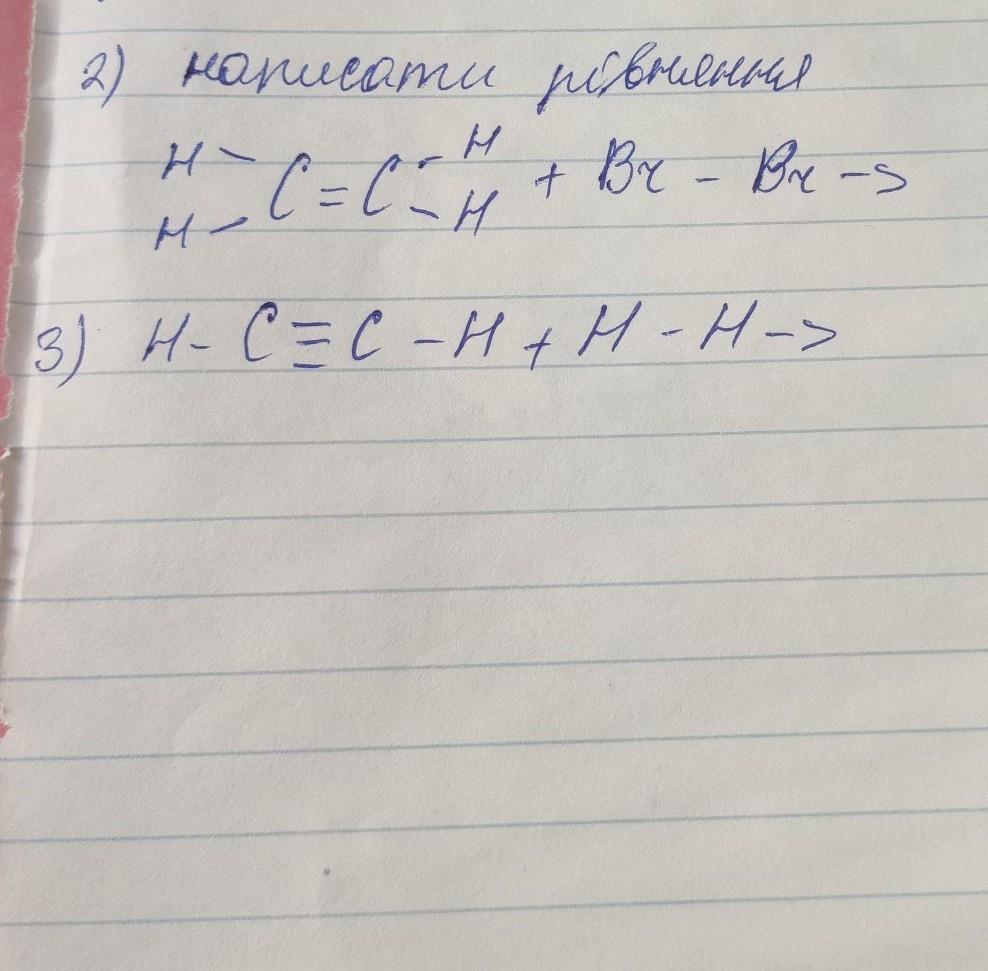 2) написати рівняння
H H
C = C + Br - Br ->
H H
3) H - C ≡ C - H + H - H ->